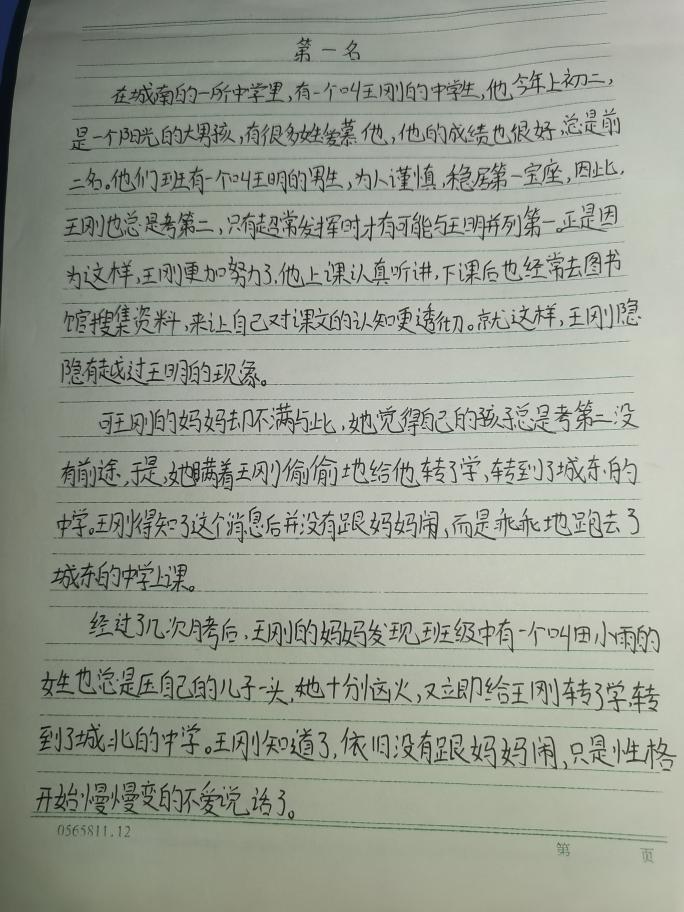 第一名
在城南的一所中学里,有一个叫王刚的中学生,他今年上初二,
是一个阳光的大男孩,有很多女生爱慕他,他的成绩也很好,总是前
二名。他们班有一个叫王明的男生,为人谨慎,稳居第一宝座,因此,
王刚也总是考第二,只有超常发挥时才有可能与王明并列第一。正是因
为这样,王刚更加努力了,他上课认真听讲,下课后也经常去图书
馆搜集资料,来让自己对课文的认知更透彻。就这样,王刚隐
隐有越过王明的现象。
可王刚的妈妈却不满与此,她觉得自己的孩子总是考第二没
有前途,于是,她瞒着王刚偷偷地给他转了学,转到了城东的
中学。王刚得知了这个消息后并没有跟妈妈闹,而是乖乖地跑去了
城东的中学上课。
经过了几次月考后,王刚的妈妈发现班级中有一个叫田小雨的
女生也总是压自己的儿子一头,她十分恼火,又立即给王刚转了学,转
到了城北的中学。王刚知道了,依旧没有跟妈妈闹,只是性格
开始慢慢变的不爱说话了。
0565811.12
第 页